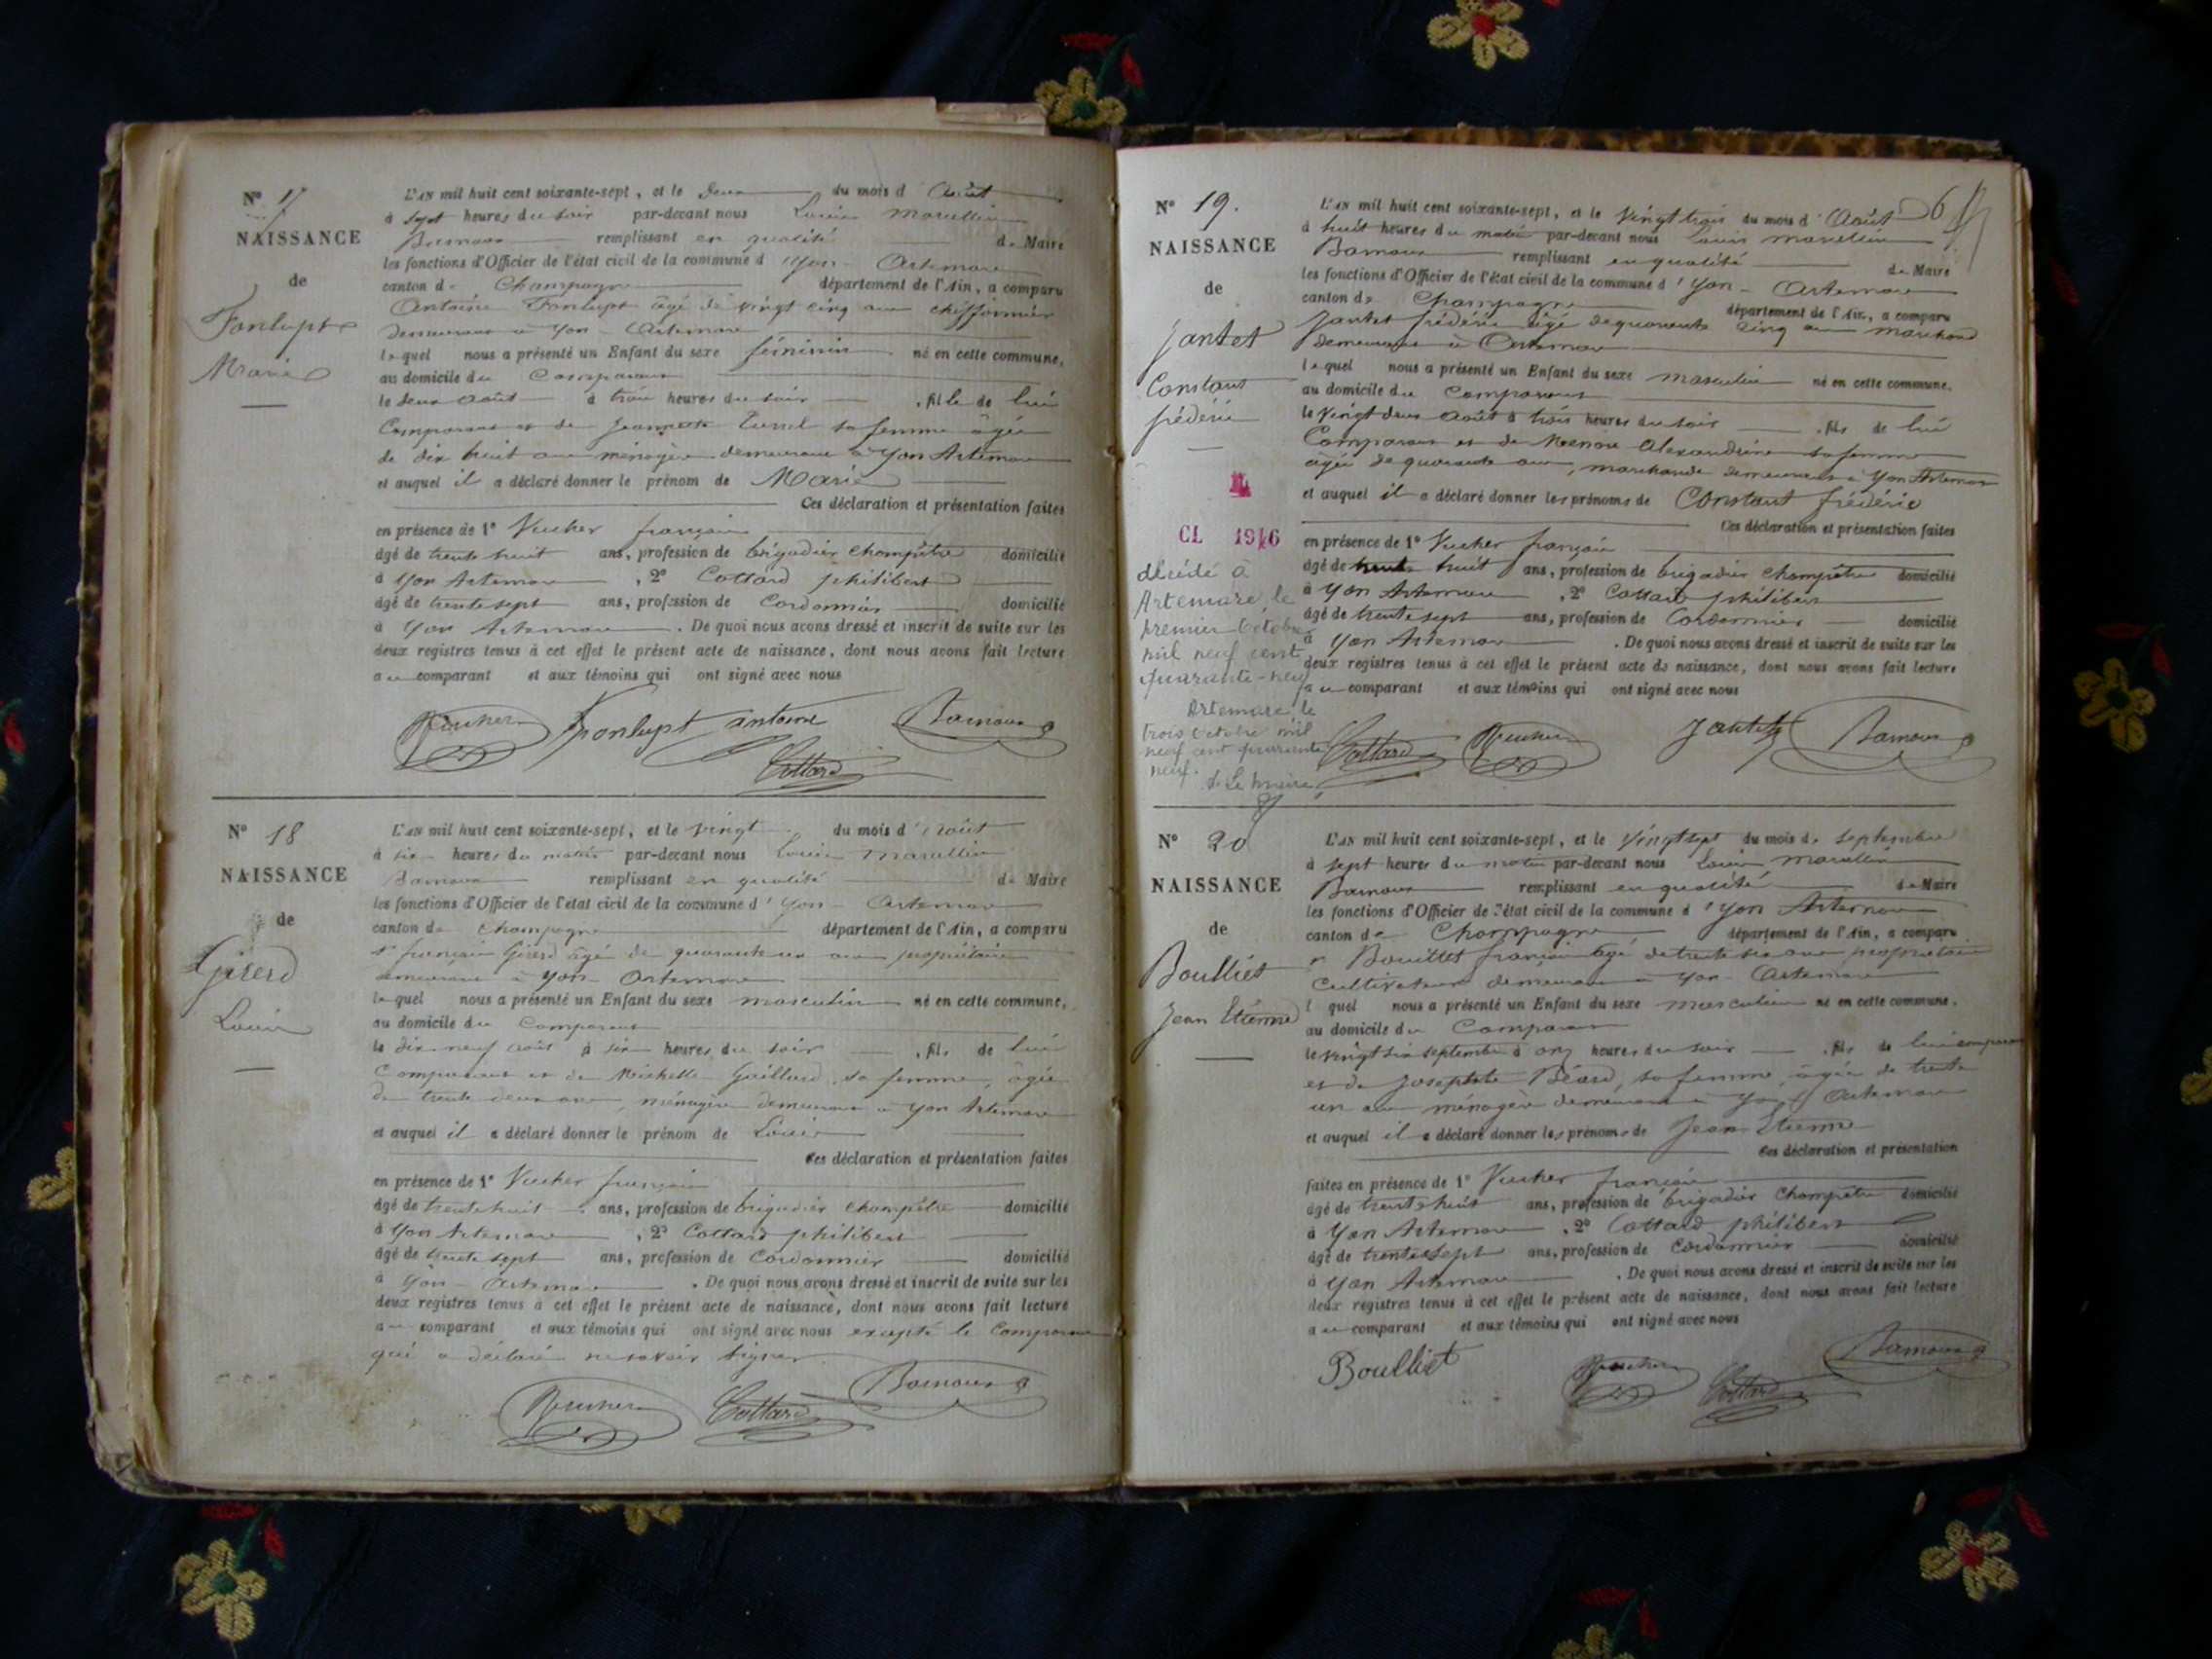 N° 17
NAISSANCE
de
Fonlupt
Marie
L'AN mil huit cent soixante-sept, et le deux du mois d'Août
à sept heures du soir par-devant nous Louis Marcellin
remplissant en qualité de Maire
les fonctions d'Officier de l'état civil de la commune d'Yon-Artemare
canton de Champagne département de l'Ain, a comparu
Antoine Fonlupt âgé de vingt cinq ans chiffonnier
demeurant à Yon-Artemare
lequel nous a présenté un Enfant du sexe féminin né en cette commune,
au domicile du Comparant
le deux août à trois heures du soir, fille de lui
Comparant et de Jeannette sa femme âgée
de dix huit ans ménagère demeurant à Yon Artemare
et auquel il a déclaré donner le prénom de Marie
Ces déclaration et présentation faites
en présence de 1° Vucher françois
âgé de trente huit ans, profession de brigadier champêtre domicilié
à Yon Artemare, 2° Cottard philibert
âgé de trente sept ans, profession de Cordonnier domicilié
à Yon Artemare. De quoi nous avons dressé et inscrit de suite sur les
deux registres tenus à cet effet le présent acte de naissance, dont nous avons fait lecture
au comparant et aux témoins qui ont signé avec nous
Vucher fonlupt antoine
Cottard
N° 18
NAISSANCE
de
Girerd
Louis
L'AN mil huit cent soixante-sept, et le vingt du mois d'Août
à six heures du matin par-devant nous Louis Marcellin
remplissant en qualité de Maire
les fonctions d'Officier de l'état civil de la commune d'Yon-Artemare
canton de Champagne département de l'Ain, a comparu
sr françois Girerd âgé de quarante un ans propriétaire
demeurant à Yon-Artemare
lequel nous a présenté un Enfant du sexe masculin né en cette commune,
au domicile du Comparant
le dix neuf août à six heures du soir, fils de lui
Comparant et de Michelle Gaillard, sa femme, âgée
de trente deux ans, ménagère demeurant à Yon Artemare
et auquel il a déclaré donner le prénom de Louis
Ces déclaration et présentation faites
en présence de 1° Vucher françois
âgé de trente huit ans, profession de brigadier champêtre domicilié
à Yon Artemare, 2° Cottard philibert
âgé de trente sept ans, profession de Cordonnier domicilié
à Yon-Artemare. De quoi nous avons dressé et inscrit de suite sur les
deux registres tenus à cet effet le présent acte de naissance, dont nous avons fait lecture
au comparant et aux témoins qui ont signé avec nous excepté le Comparant
qui a déclaré ne savoir signer
Vucher Cottard
N° 19.
NAISSANCE
de
Jantet
Constant
frédéric
CL 1946
décédé à
Artemare, le
premier Octobre
mil neuf cent
quarante-neuf
Artemare, le
trois Octobre mil
neuf cent quarante
neuf.
Le Maire,
L'AN mil huit cent soixante-sept, et le vingt trois du mois d'Août
à huit heures du matin par-devant nous Louis Marcellin
remplissant en qualité de Maire
les fonctions d'Officier de l'état civil de la commune d'Yon-Artemare
canton de Champagne département de l'Ain, a comparu
Jantet frédéric âgé de quarante cinq ans marchand
demeurant à Artemare
lequel nous a présenté un Enfant du sexe masculin né en cette commune,
au domicile du Comparant
le vingt deux août à trois heures du soir, fils de lui
Comparant et de Alexandrine sa femme
âgée de quarante ans, marchande demeurant à Yon Artemare
et auquel il a déclaré donner les prénoms de Constant frédéric
Ces déclaration et présentation faites
en présence de 1° Vucher françois
âgé de trente huit ans, profession de brigadier champêtre domicilié
à Yon Artemare, 2° Cottard philibert
âgé de trente sept ans, profession de Cordonnier domicilié
à Yon Artemare. De quoi nous avons dressé et inscrit de suite sur les
deux registres tenus à cet effet le présent acte de naissance, dont nous avons fait lecture
au comparant et aux témoins qui ont signé avec nous
Cottard Vucher Jantet
N° 20
NAISSANCE
de
Boulliet
Jean Etienne
L'AN mil huit cent soixante-sept, et le vingt sept du mois de septembre
à sept heures du matin par-devant nous Louis Marcellin
remplissant en qualité de Maire
les fonctions d'Officier de l'état civil de la commune d'Yon Artemare
canton de Champagne département de l'Ain, a comparu
sr Bouillet françois âgé de trente six ans propriétaire
cultivateur demeurant à Yon-Artemare
lequel nous a présenté un Enfant du sexe masculin né en cette commune,
au domicile du Comparant
le vingt six septembre à onze heures du soir, fils de lui comparant
et de Josephte Béard, sa femme, âgée de trente
un ans ménagère demeurant à Yon Artemare
et auquel il a déclaré donner les prénoms de Jean Etienne
Ces déclaration et présentation
faites en présence de 1° Vucher françois
âgé de trente huit ans, profession de brigadier champêtre domicilié
à Yon Artemare, 2° Cottard philibert
âgé de trente sept ans, profession de Cordonnier domicilié
à Yon Artemare. De quoi nous avons dressé et inscrit de suite sur les
deux registres tenus à cet effet le présent acte de naissance, dont nous avons fait lecture
au comparant et aux témoins qui ont signé avec nous
Boulliet Vucher Cottard